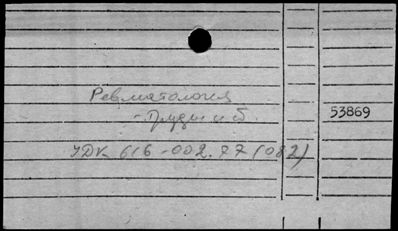 Ревматология
- Труды ин-т.
53869
УДК 616-002.77(082)